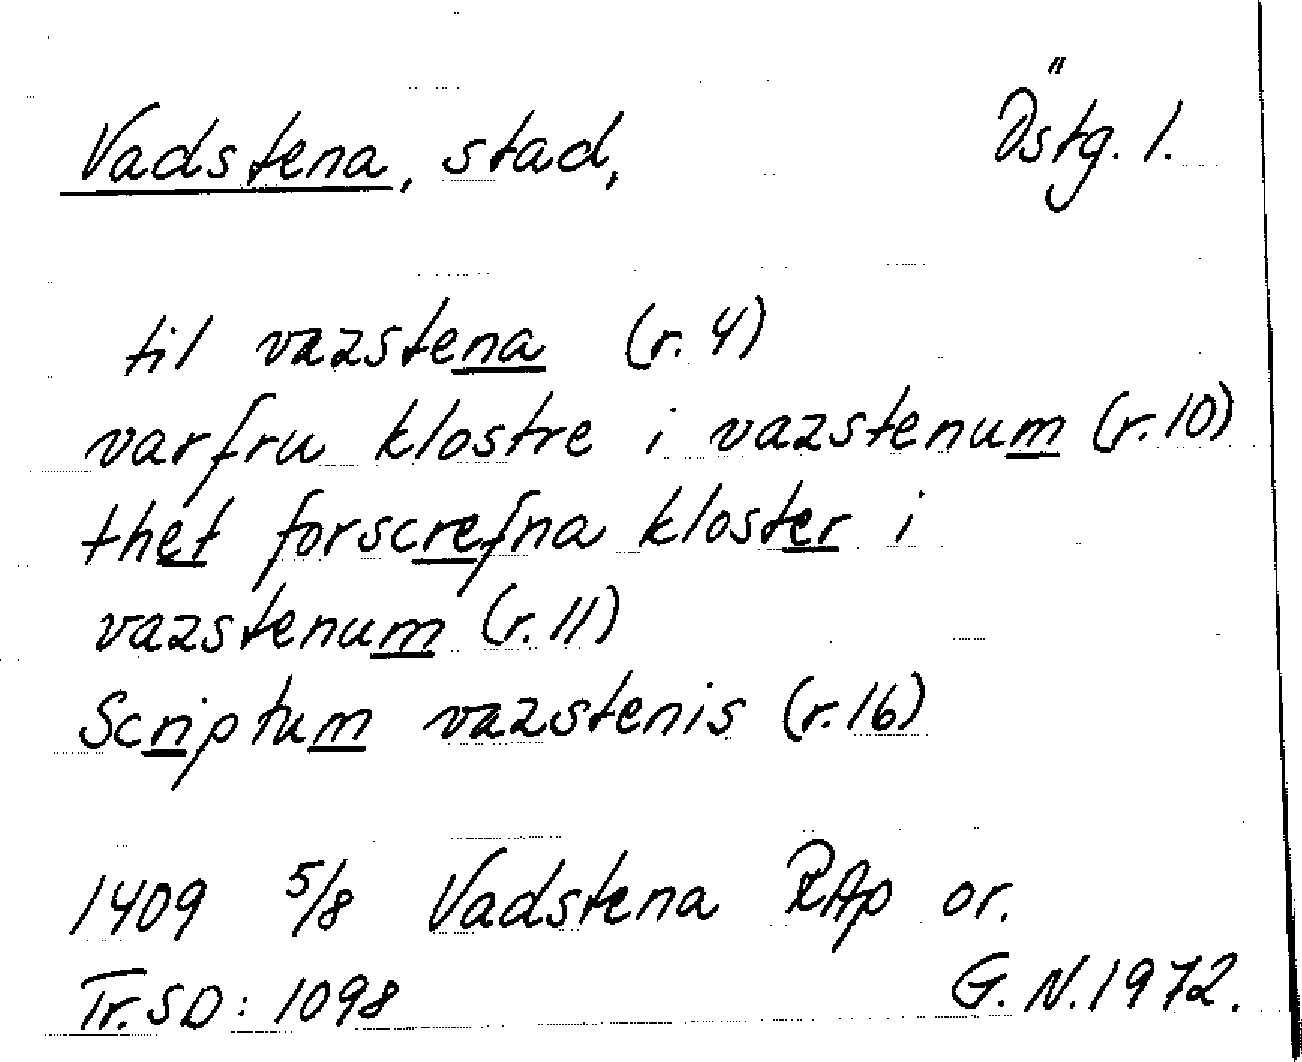 Vadstena, stad, Östg. l.
til vazstena (r. 4)
varfru klostre i vazstenum (r. 10)
thet forscrefna kloster i
vazstenum (r. 11)
Scriptum vazstenis (r. 16)
1409 5/8 Vadstena RAp or.
Tr. SD: 1098 G. N. 1972.